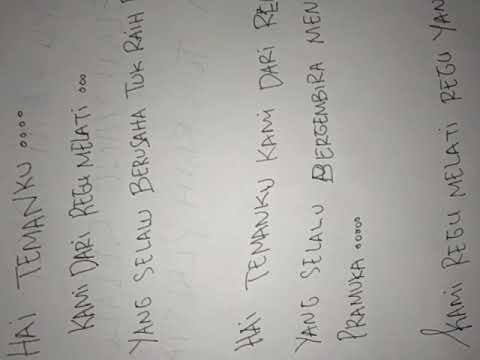 HAI TEMANKU ....
KAMI DARI REGU MELATI ...
YANG SELALU BERUSAHA TUK RAIH
HAI TEMANKU KAMI DARI
YANG SELALU BERGEMBIRA
PRAMUKA .....
KAMI REGU MELATI REGU